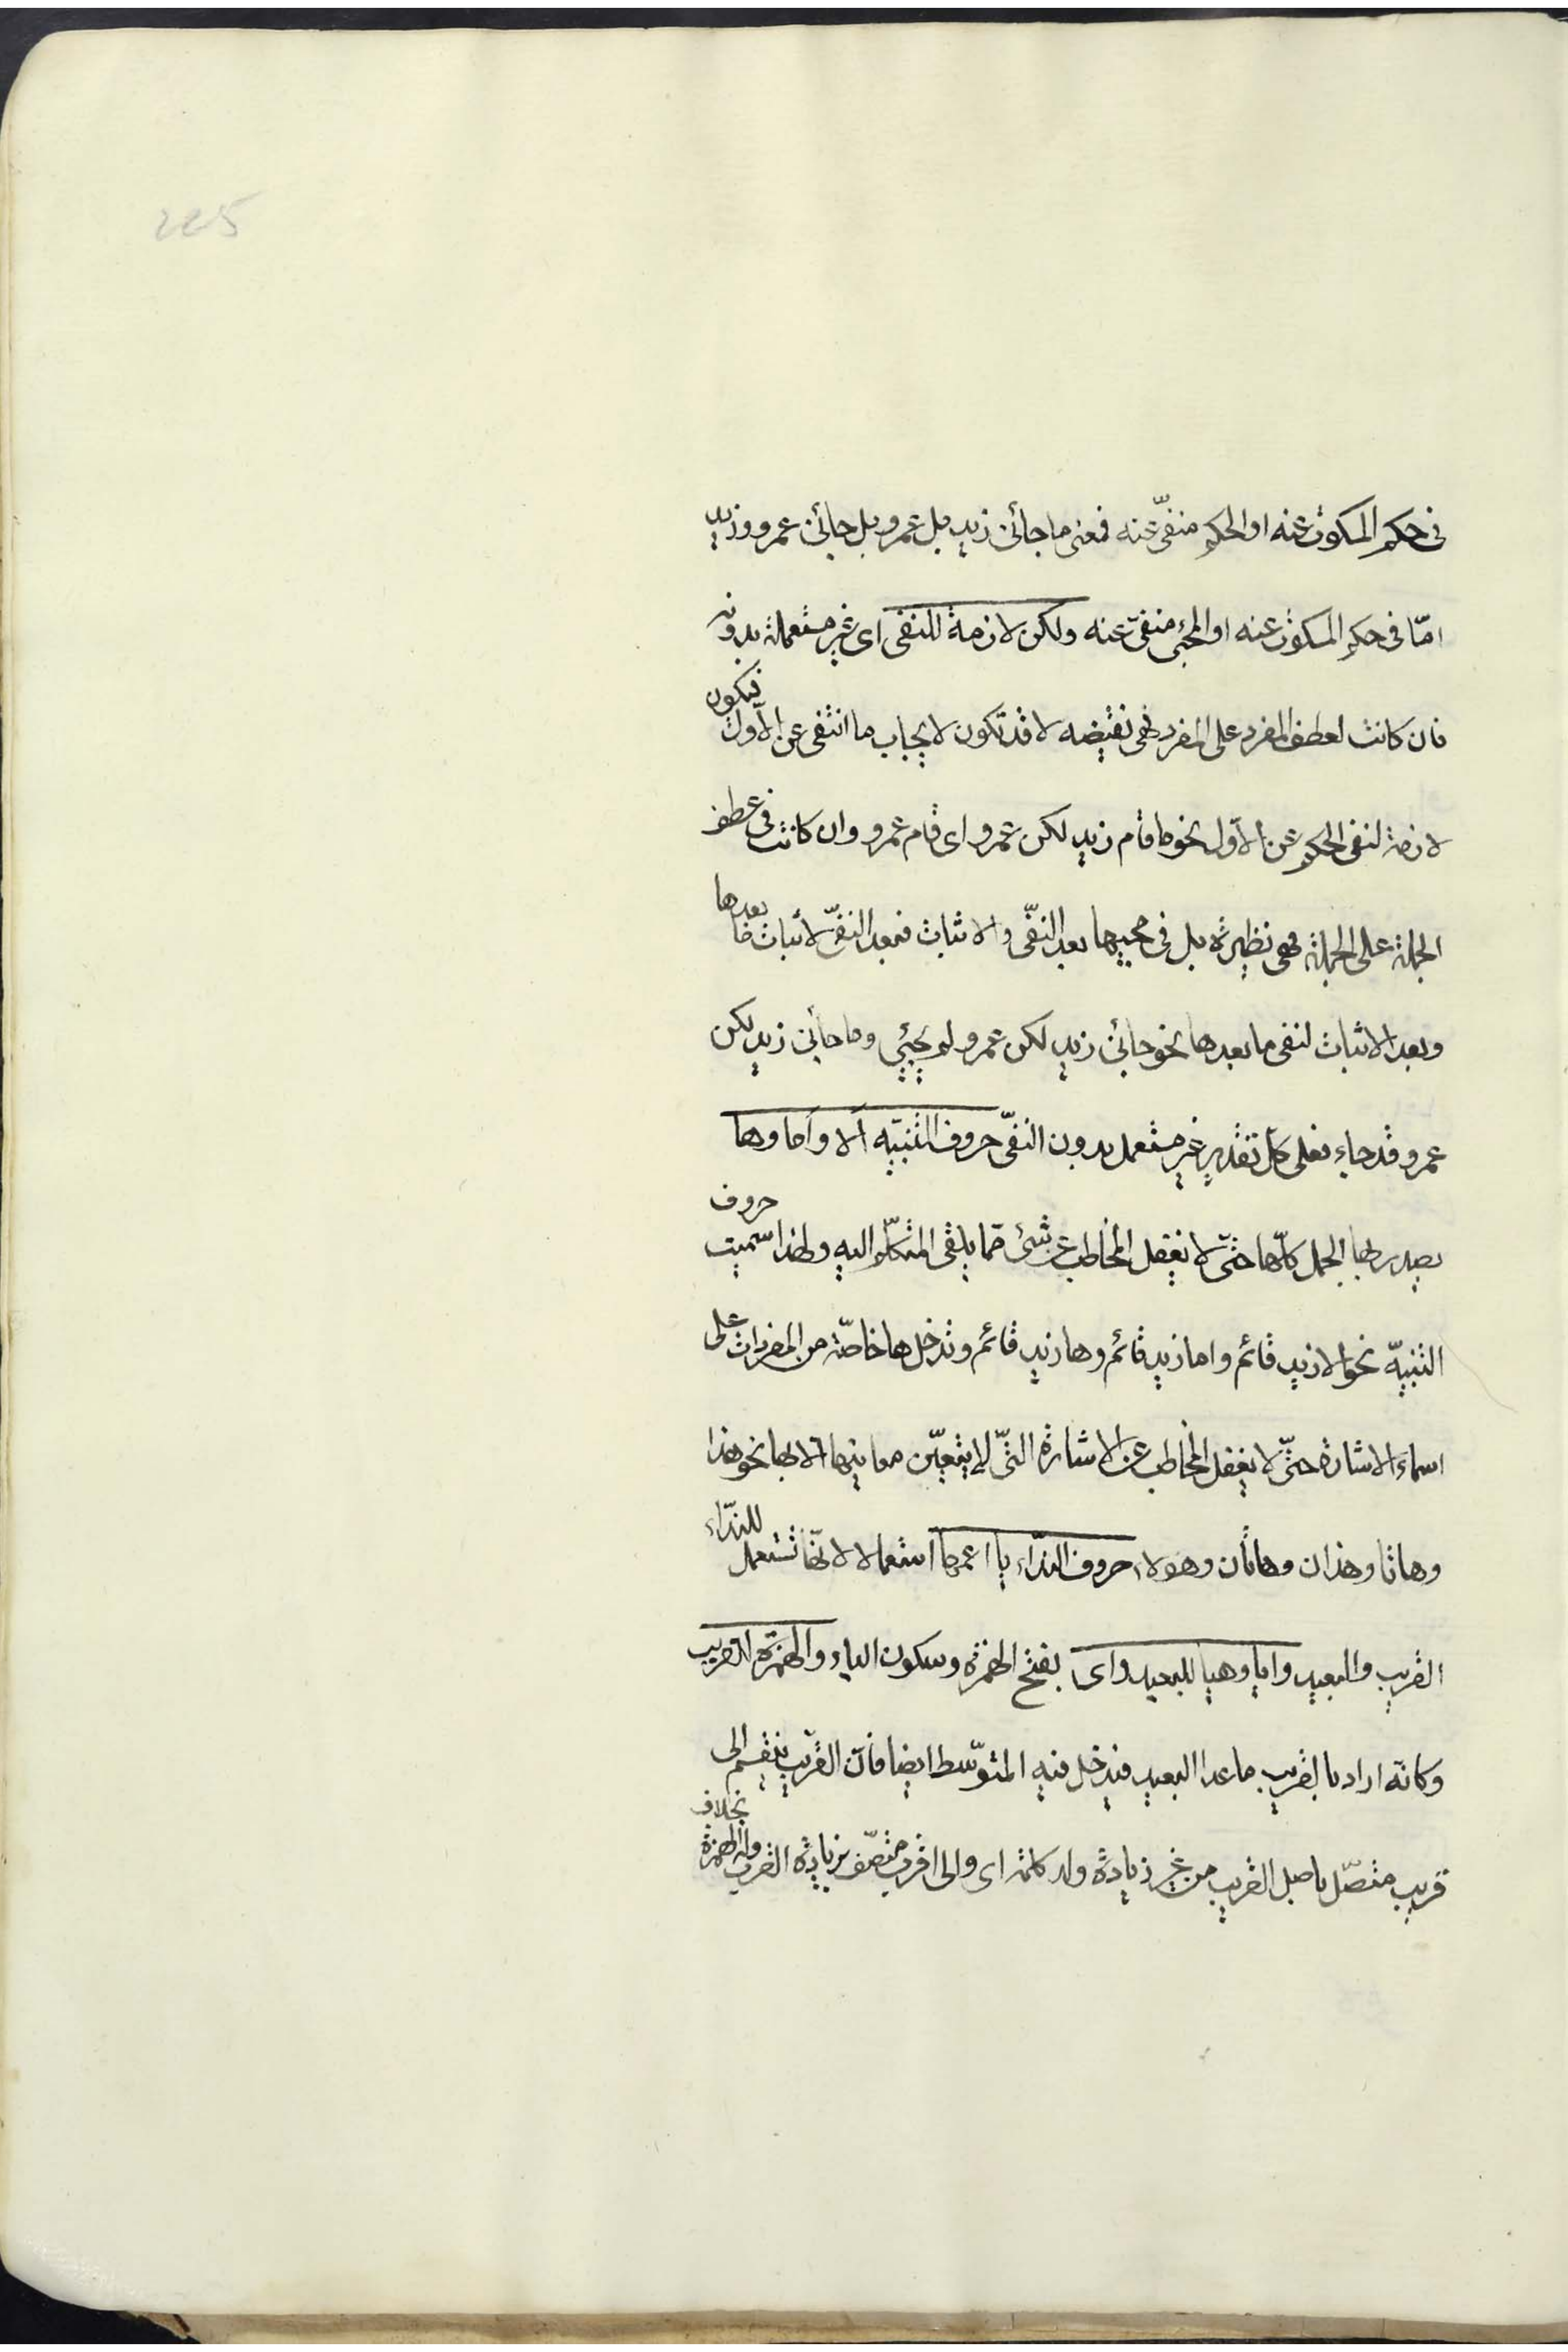 225
فى حكم المسكوت عنه او الحكم منفىّ عنه فمعنى ما جائنى زيد بل عمرو بل جائنى عمرو وزيد
امّا فى حكم المسكوت عنه او المجئ منفىّ عنه ولكن لازمة للنفى اى غير مستعملة بدونه
فان كانت لعطف المفرد على المفرد فهى نقيضه لا قد تكون لايجاب ما انتفى عن الاوّل فيكون
لازمة لنفى الحكم عن الاوّل نحو ما قام زيد لكن عمرو اى قام عمرو وان كانت فى عطف
الجملة على الجملة فهى نظيرة بل فى مجيها بعد النفّى والاثبات فبعد النفىّ لاثبات ما بعدها
وبعد الاثبات لنفى ما بعدها نحو جائنى زيد لكن عمرو لم يجئى وما جائنى زيد لكن
عمرو قد جاء فعلى كلّ تقدير غير مستعمل بدون النفىّ حروف التنبيه ألا وأما وها
يصدر بها الجمل كلّها حتّى لا يغفل المخاطب عن شئ ممّا يلقى المتكلّم اليه ولهذا سميت حروف
التنبيه نحو الا زيد قائم واما زيد قائم وها زيد قائم وتدخل ها خاصّة من المفردات على
اسماء الاشارة حتّى لا يغفل المخاطب عن الاشارة التّى لا يتعيّن معانيها الا بها نحو هذا
وهاتا وهذان وهاتان وهولاء حروف النّداء يا اعمها استعمالا لانّها تستعمل للنّداء
القريب والبعيد وايا وهيا للبعيد واى بفتح الهمزة وسكون الياء والهمزة للقريب
وكانّه اراد بالقريب ما عدا البعيد فيدخل فيه المتوّسط ايضا فانّ القريب ينقسم الى
قريب متصّل باصل القريب من غير زيادة وله كلمة اى والى اقرب متصّف بزيادة القرب وله الهمزة بخلاف